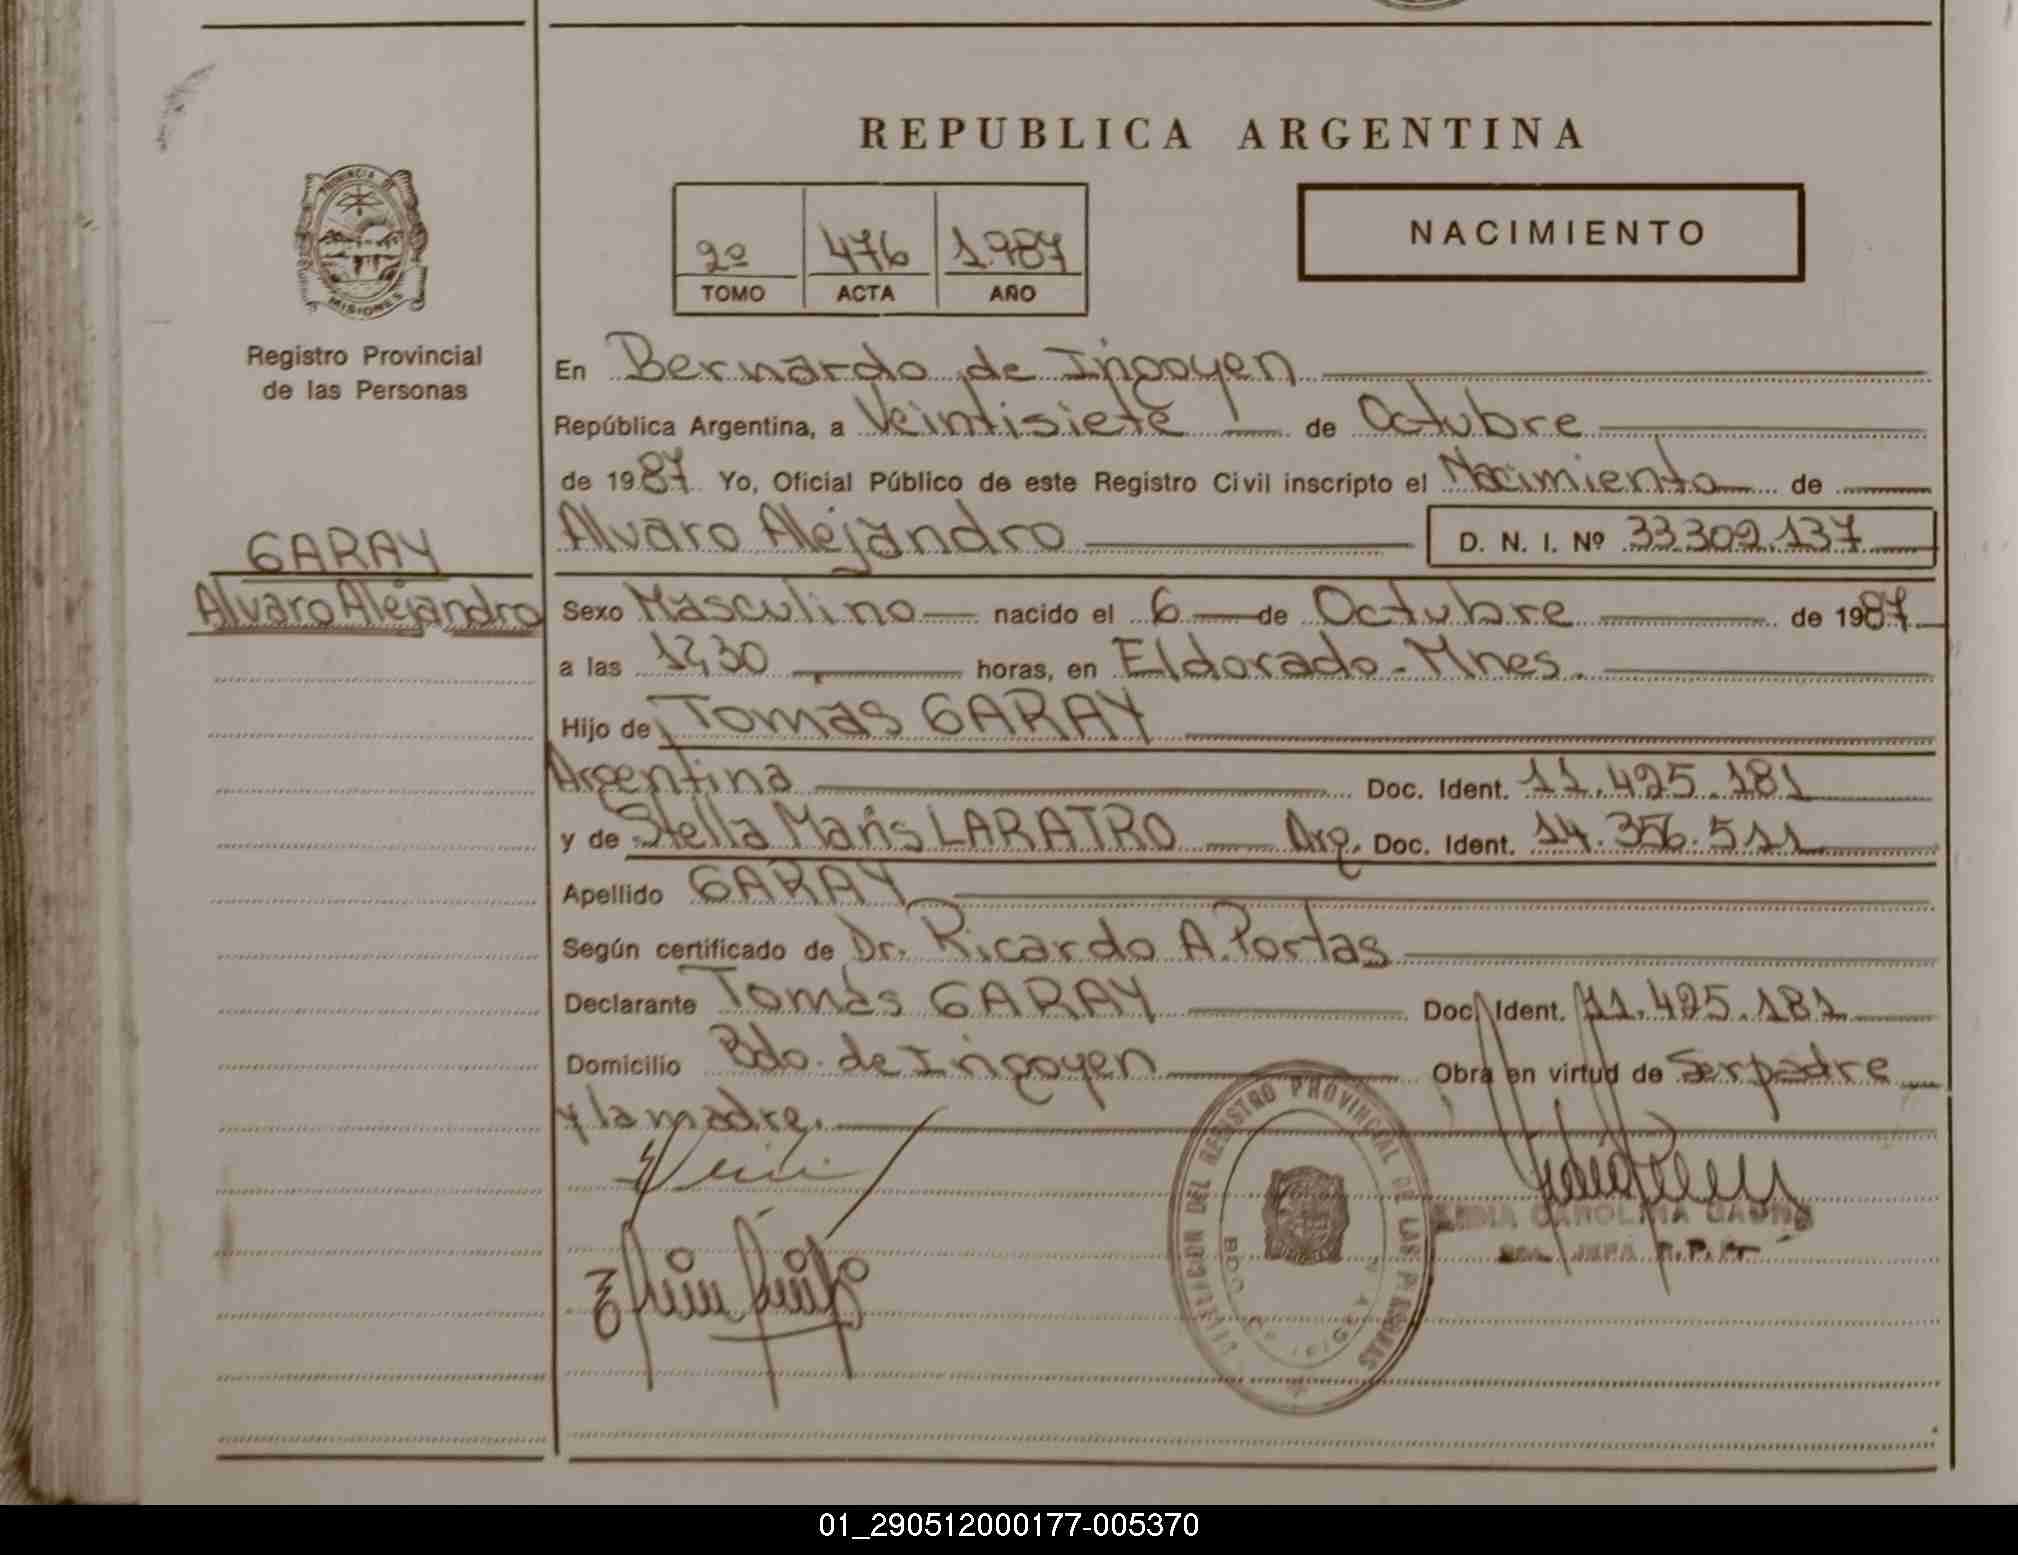 REPUBLICA ARGENTINA
PROVINCIA DE
MISIONES
Registro Provincial
de las Personas
2º 476 1.987
TOMO ACTA AÑO
NACIMIENTO
En Bernardo de Irigoyen
República Argentina, a Veintisiete de Octubre
de 1987 Yo, Oficial Público de este Registro Civil inscripto el Nacimiento de
Alvaro Alejandro D. N. I. Nº 33.309.137
GARAY
Alvaro Alejandro
Sexo Masculino nacido el 6 de Octubre de 1987
a las horas, en Eldorado-Mnes.
Hijo de Tomás GARAY
Argentina Doc. Ident. 11.425.181
y de Stella Maris LARATRO Arg. Doc. Ident. 14.356.511
Apellido GARAY
Según certificado de Dr. Ricardo A. Portas
Declarante Tomás GARAY Doc. Ident. 11.425.181
Domicilio Bdo. de Irigoyen Obra en virtud de Ser padre
y la madre.
DEL REGISTRO PROVINCIAL DE LAS PERSONAS
BDO DE IRIGOYEN
CAROLINA
JEFA R.P.P.
01_290512000177-005370